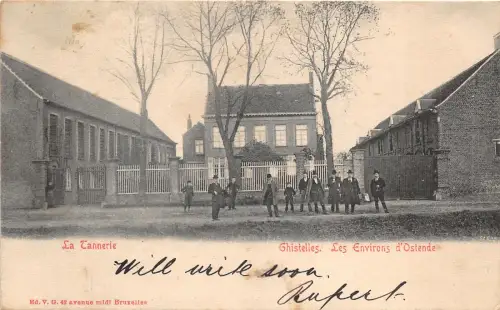 La Tannerie
Ghistelles. Les Environs d'Ostende
Will write soon.
Rupert.
Ed. V. G. 42 avenue midi Bruxelles